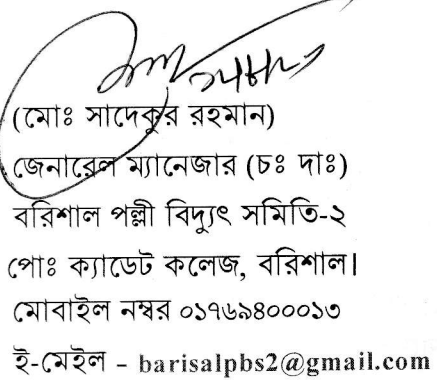 (মোঃ সাদেকুর রহমান)
জেনারেল ম্যানেজার (চঃ দাঃ)
বরিশাল পল্লী বিদ্যুৎ সমিতি-২
পোঃ ক্যাডেট কলেজ, বরিশাল।
মোবাইল নম্বর ০১৭৬৯৪০০০১৩
ই-মেইল - barisalpbs2@gmail.com